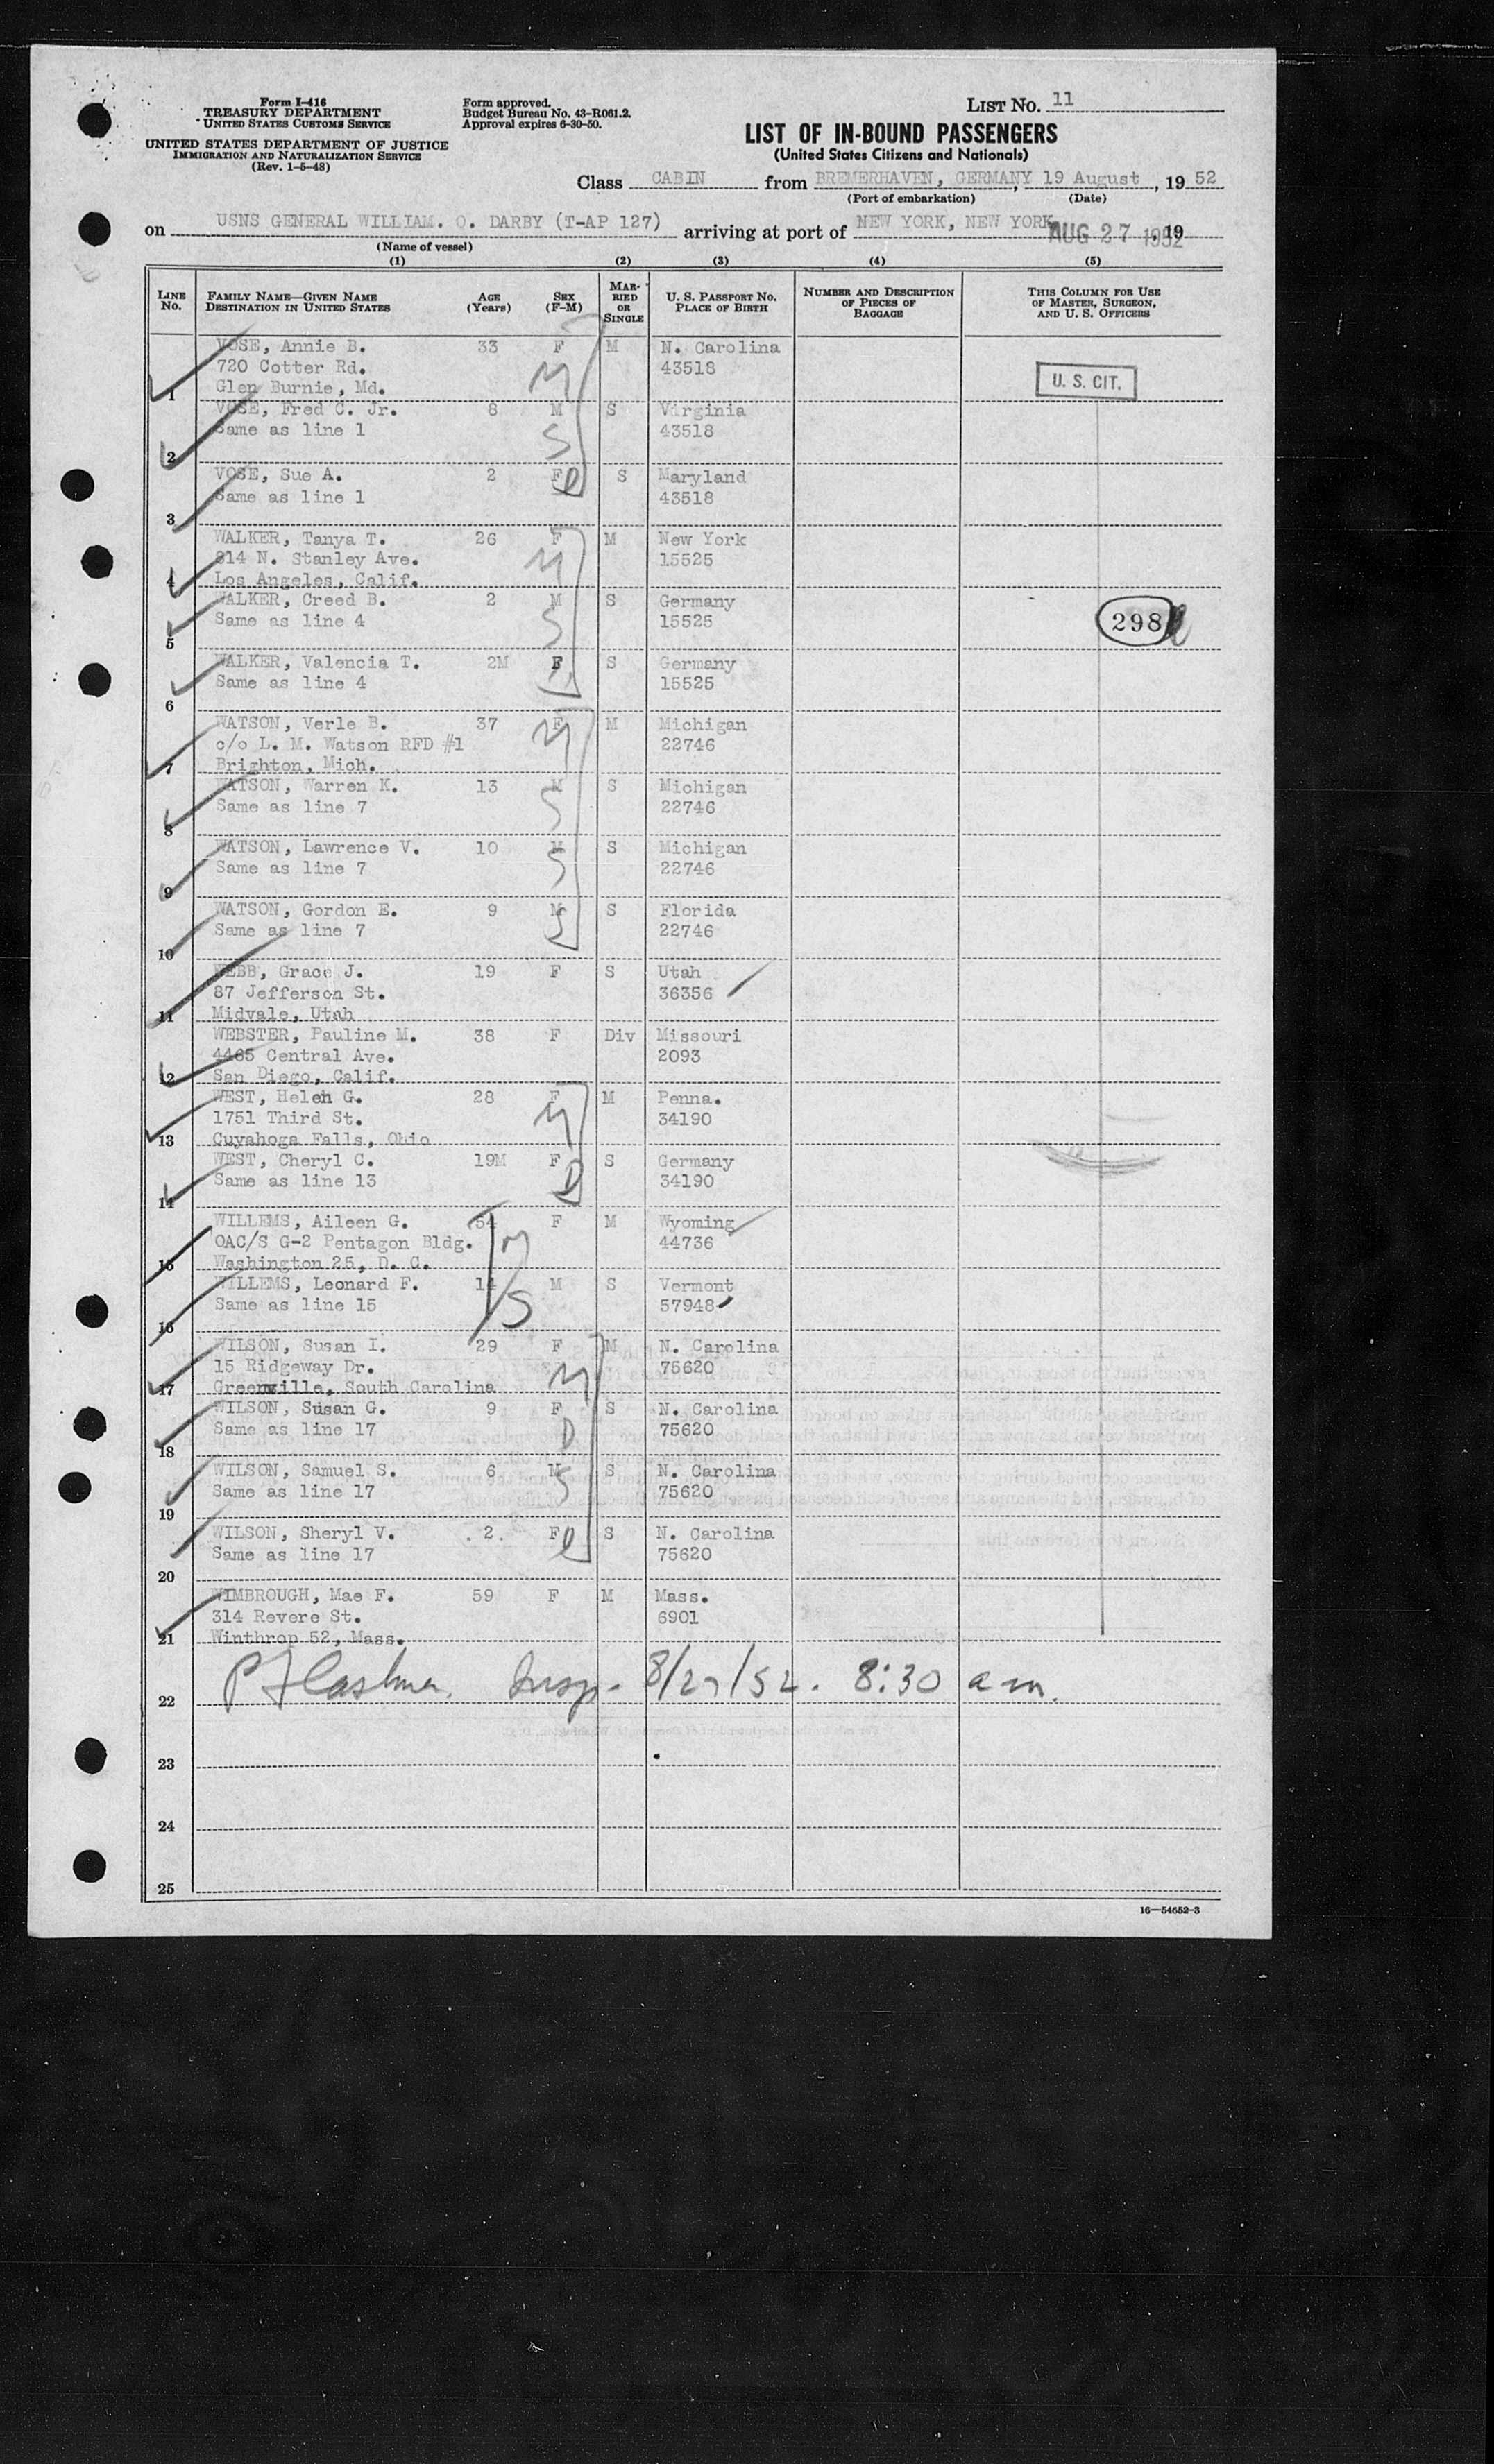 Form I-416
TREASURY DEPARTMENT
UNITED STATES CUSTOMS SERVICE
UNITED STATES DEPARTMENT OF JUSTICE
IMMIGRATION AND NATURALIZATION SERVICE
(Rev. 1-5-48)
Form approved.
Budget Bureau No. 43-R061.2.
Approval expires 6-30-50.
LIST NO. 11
LIST OF IN-BOUND PASSENGERS
(United States Citizens and Nationals)
Class CABIN from BREMERHAVEN, GERMANY, 19 August, 19 52
(Port of embarkation) (Date)
on USNS GENERAL WILLIAM. O. DARBY (T-AP 127) arriving at port of NEW YORK, NEW YORK AUG 27 1952, 19
(Name of vessel)
(1) (2) (3) (4) (5)
LINE NO. FAMILY NAME—GIVEN NAME DESTINATION IN UNITED STATES AGE (Years) SEX (F-M) MARRIED OR SINGLE U. S. PASSPORT NO. PLACE OF BIRTH NUMBER AND DESCRIPTION OF PIECES OF BAGGAGE THIS COLUMN FOR USE OF MASTER, SURGEON, AND U. S. OFFICERS
VOSE, Annie B. 33 F M N. Carolina
720 Cotter Rd. M 43518 U. S. CIT.
1 Glen Burnie, Md.
VOSE, Fred C. Jr. 8 M S Virginia
Same as line 1 S 43518
2
VOSE, Sue A. 2 F D S Maryland
Same as line 1 43518
3
WALKER, Tanya T. 26 F M New York
814 N. Stanley Ave. M 15525
4 Los Angeles, Calif.
WALKER, Creed B. 2 M S Germany
Same as line 4 S 15525 298
5
WALKER, Valencia T. 2M F S Germany
Same as line 4 D 15525
6
WATSON, Verle B. 37 F M Michigan
c/o L. M. Watson RFD #1 M 22746
7 Brighton, Mich.
WATSON, Warren K. 13 M S Michigan
Same as line 7 S 22746
8
WATSON, Lawrence V. 10 M S Michigan
Same as line 7 S 22746
9
WATSON, Gordon E. 9 M S Florida
Same as line 7 S 22746
10
WEBB, Grace J. 19 F S Utah
87 Jefferson St. 36356
11 Midvale, Utah
WEBSTER, Pauline M. 38 F Div Missouri
4465 Central Ave. 2093
12 San Diego, Calif.
WEST, Helen G. 28 F M Penna.
1751 Third St. M 34190
13 Cuyahoga Falls, Ohio
WEST, Cheryl C. 19M F S Germany
Same as line 13 D 34190
14
WILLEMS, Aileen G. 54 F M Wyoming
OAC/S G-2 Pentagon Bldg. M 44736
15 Washington 25, D. C.
WILLEMS, Leonard F. 14 M S Vermont
Same as line 15 S 57948
16
WILSON, Susan I. 29 F M N. Carolina
15 Ridgeway Dr. M 75620
17 Greenville, South Carolina
WILSON, Susan G. 9 F S N. Carolina
Same as line 17 D 75620
18
WILSON, Samuel S. 6 M S N. Carolina
Same as line 17 S 75620
19
WILSON, Sheryl V. 2 F D S N. Carolina
Same as line 17 75620
20
WIMBROUGH, Mae F. 59 F M Mass.
314 Revere St. 6901
21 Winthrop 52, Mass.
22 Insp. 8/27/52. 8:30 am.
23
24
25
16—54652-3